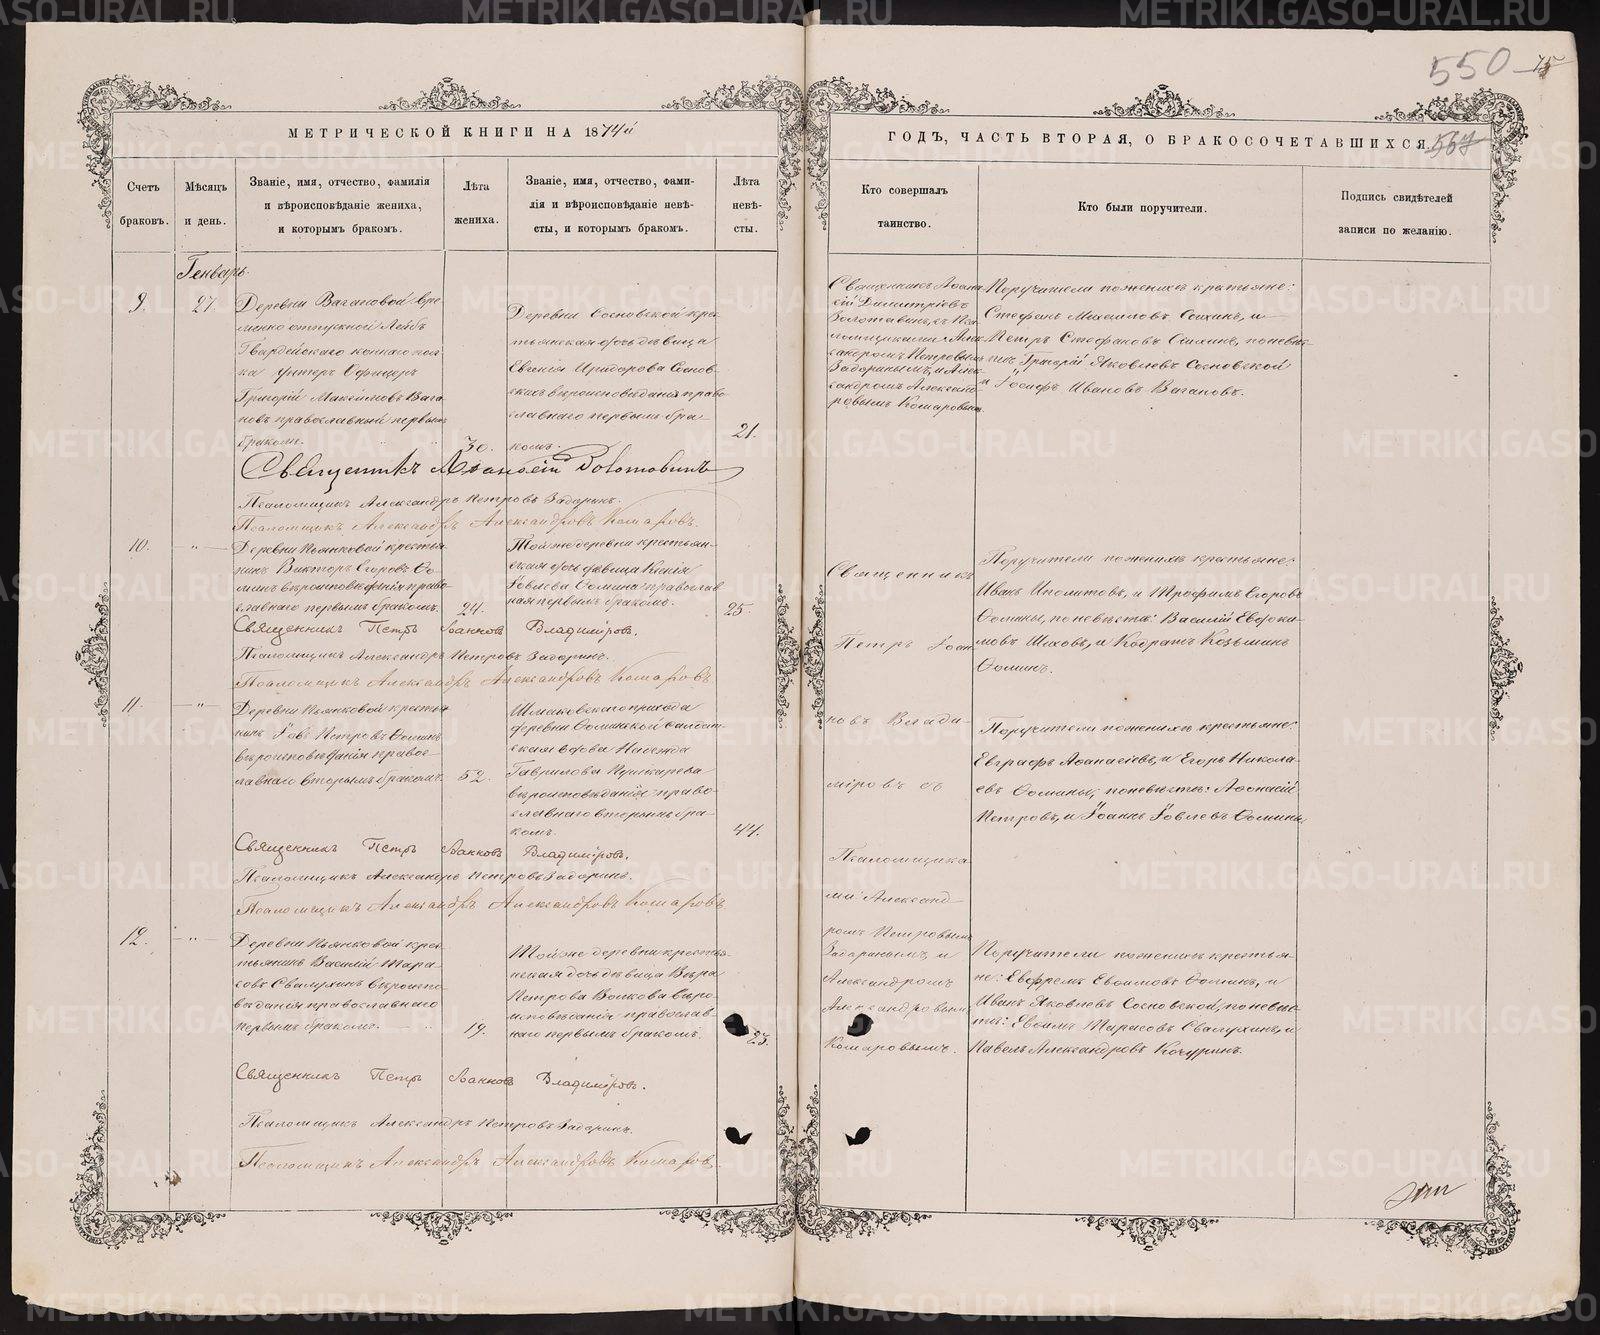 550
75
МЕТРИЧЕСКОЙ КНИГИ НА 1874й
ГОДЪ, ЧАСТЬ ВТОРАЯ, О БРАКОСОЧЕТАВШИХСЯ.
567
Счетъ браковъ.
Мѣсяцъ и день.
Званіе, имя, отчество, фамилія
и вѣроисповѣданіе жениха,
и которымъ бракомъ.
Лѣта жениха.
Званіе, имя, отчество, фами-
лія и вѣроисповѣданіе невѣ-
сты, и которымъ бракомъ.
Лѣта невѣ-
сты.
Кто совершалъ
таинство.
Кто были поручители.
Подпись свидѣтелей
записи по желанію.
Генварь.
9.
27.
Деревни Вагановой вре-
менно отпускной Лейбъ
Гвардейскаго коннаго пол-
ка Унтеръ Офицеръ
Григорій Максимовъ Вага-
новъ православный первымъ
бракомъ.
30.
Деревни Сосновской кре-
стьянская дочь дѣвица
Евгенія
вѣроисповѣданія право-
славнаго первымъ бра-
комъ.
21.
Священникъ Аѳана-
сій Димитріевъ
Золотавинъ, съ Пса-
ломщиками Але-
ксандромъ Петровымъ
Задоринымъ, и Алек-
сандромъ Александ-
ровымъ Комаровымъ
Поручители по женихѣ крестьяне:
Стефанъ Михаиловъ и
Петръ Стефановъ по невѣс-
тѣ: Григорій Яковлевъ Сосновской
и Іосифъ Ивановъ Вагановъ.
Священникъ Аѳанасій Золотавинъ
Псаломщикъ Александръ Петровъ Задоринъ.
Псаломщикъ Александръ Александровъ Комаровъ.
10.
— " —
Деревни Пьянковой крестья-
нинъ Викторъ Егоровъ Ѳо-
минъ вѣроисповѣданія право-
славнаго первымъ бракомъ.
24.
Той же деревни крестьян-
ская дочь дѣвица Ксенія
Іовлева Ѳомина православ-
ная первымъ бракомъ.
25.
Священникъ
Петръ Іоан-
новъ Влади-
міровъ съ
Псаломщика-
ми: Александ-
ромъ Петровымъ
Задоринымъ, и
Александромъ
Александровымъ
Комаровымъ.
Поручители по женихѣ крестьяне:
Иванъ Иполитовъ, и Трофимъ Егоровъ
Ѳомины, по невѣстѣ: Василій Евдоки-
мовъ Шиховъ, и Кодратъ Козьминъ
Ѳоминъ.
Священникъ Петръ Іоанновъ Владиміровъ.
Псаломщикъ Александръ Петровъ Задоринъ.
Псаломщикъ Александръ Александровъ Комаровъ
11.
— " —
Деревни Пьянковой крестья-
нинъ Іовъ Петровъ Ѳоминъ
вѣроисповѣданія правос-
лавнаго вторымъ бракомъ.
52.
прихода
деревни Ѳоминской солдат-
ская вдова Надежда
Гаврилова Пушкарева
вѣроисповѣданія право-
славнаго вторымъ бра-
комъ.
44.
Поручители по женихѣ крестьяне:
Евграфъ Аѳанасіевъ, и Егоръ Никола-
евъ Ѳомины, по невѣстѣ: Аѳонасій
Петровъ, и Іоаннъ Іовлевъ Ѳомины.
Священникъ Петръ Іоанновъ Владиміровъ.
Псаломщикъ Александръ Петровъ Задоринъ.
Псаломщикъ Александръ Александровъ Комаровъ
12.
— " —
Деревни Пьянковой крес-
тьянинъ Василій Тара-
совъ Свалухинъ вѣроиспо-
вѣданія православнаго
первымъ бракомъ.
19.
Той же деревни крестья-
нская дочь дѣвица Вѣра
Петрова Волкова вѣро-
исповѣданія православ-
наго первымъ бракомъ.
23.
Поручители по женихѣ крестья-
не: Евфремъ Евѳимовъ Ѳоминъ, и
Иванъ Яковлевъ Сосновской, по невѣс-
тѣ: Евѳимъ Тарасовъ Свалухинъ, и
Павелъ Александровъ Кочуринъ.
Священникъ Петръ Іоанновъ Владиміровъ.
Псаломщикъ Александръ Петровъ Задоринъ.
Псаломщикъ Александръ Александровъ Комаровъ
METRIKI.GASO-URAL.RU